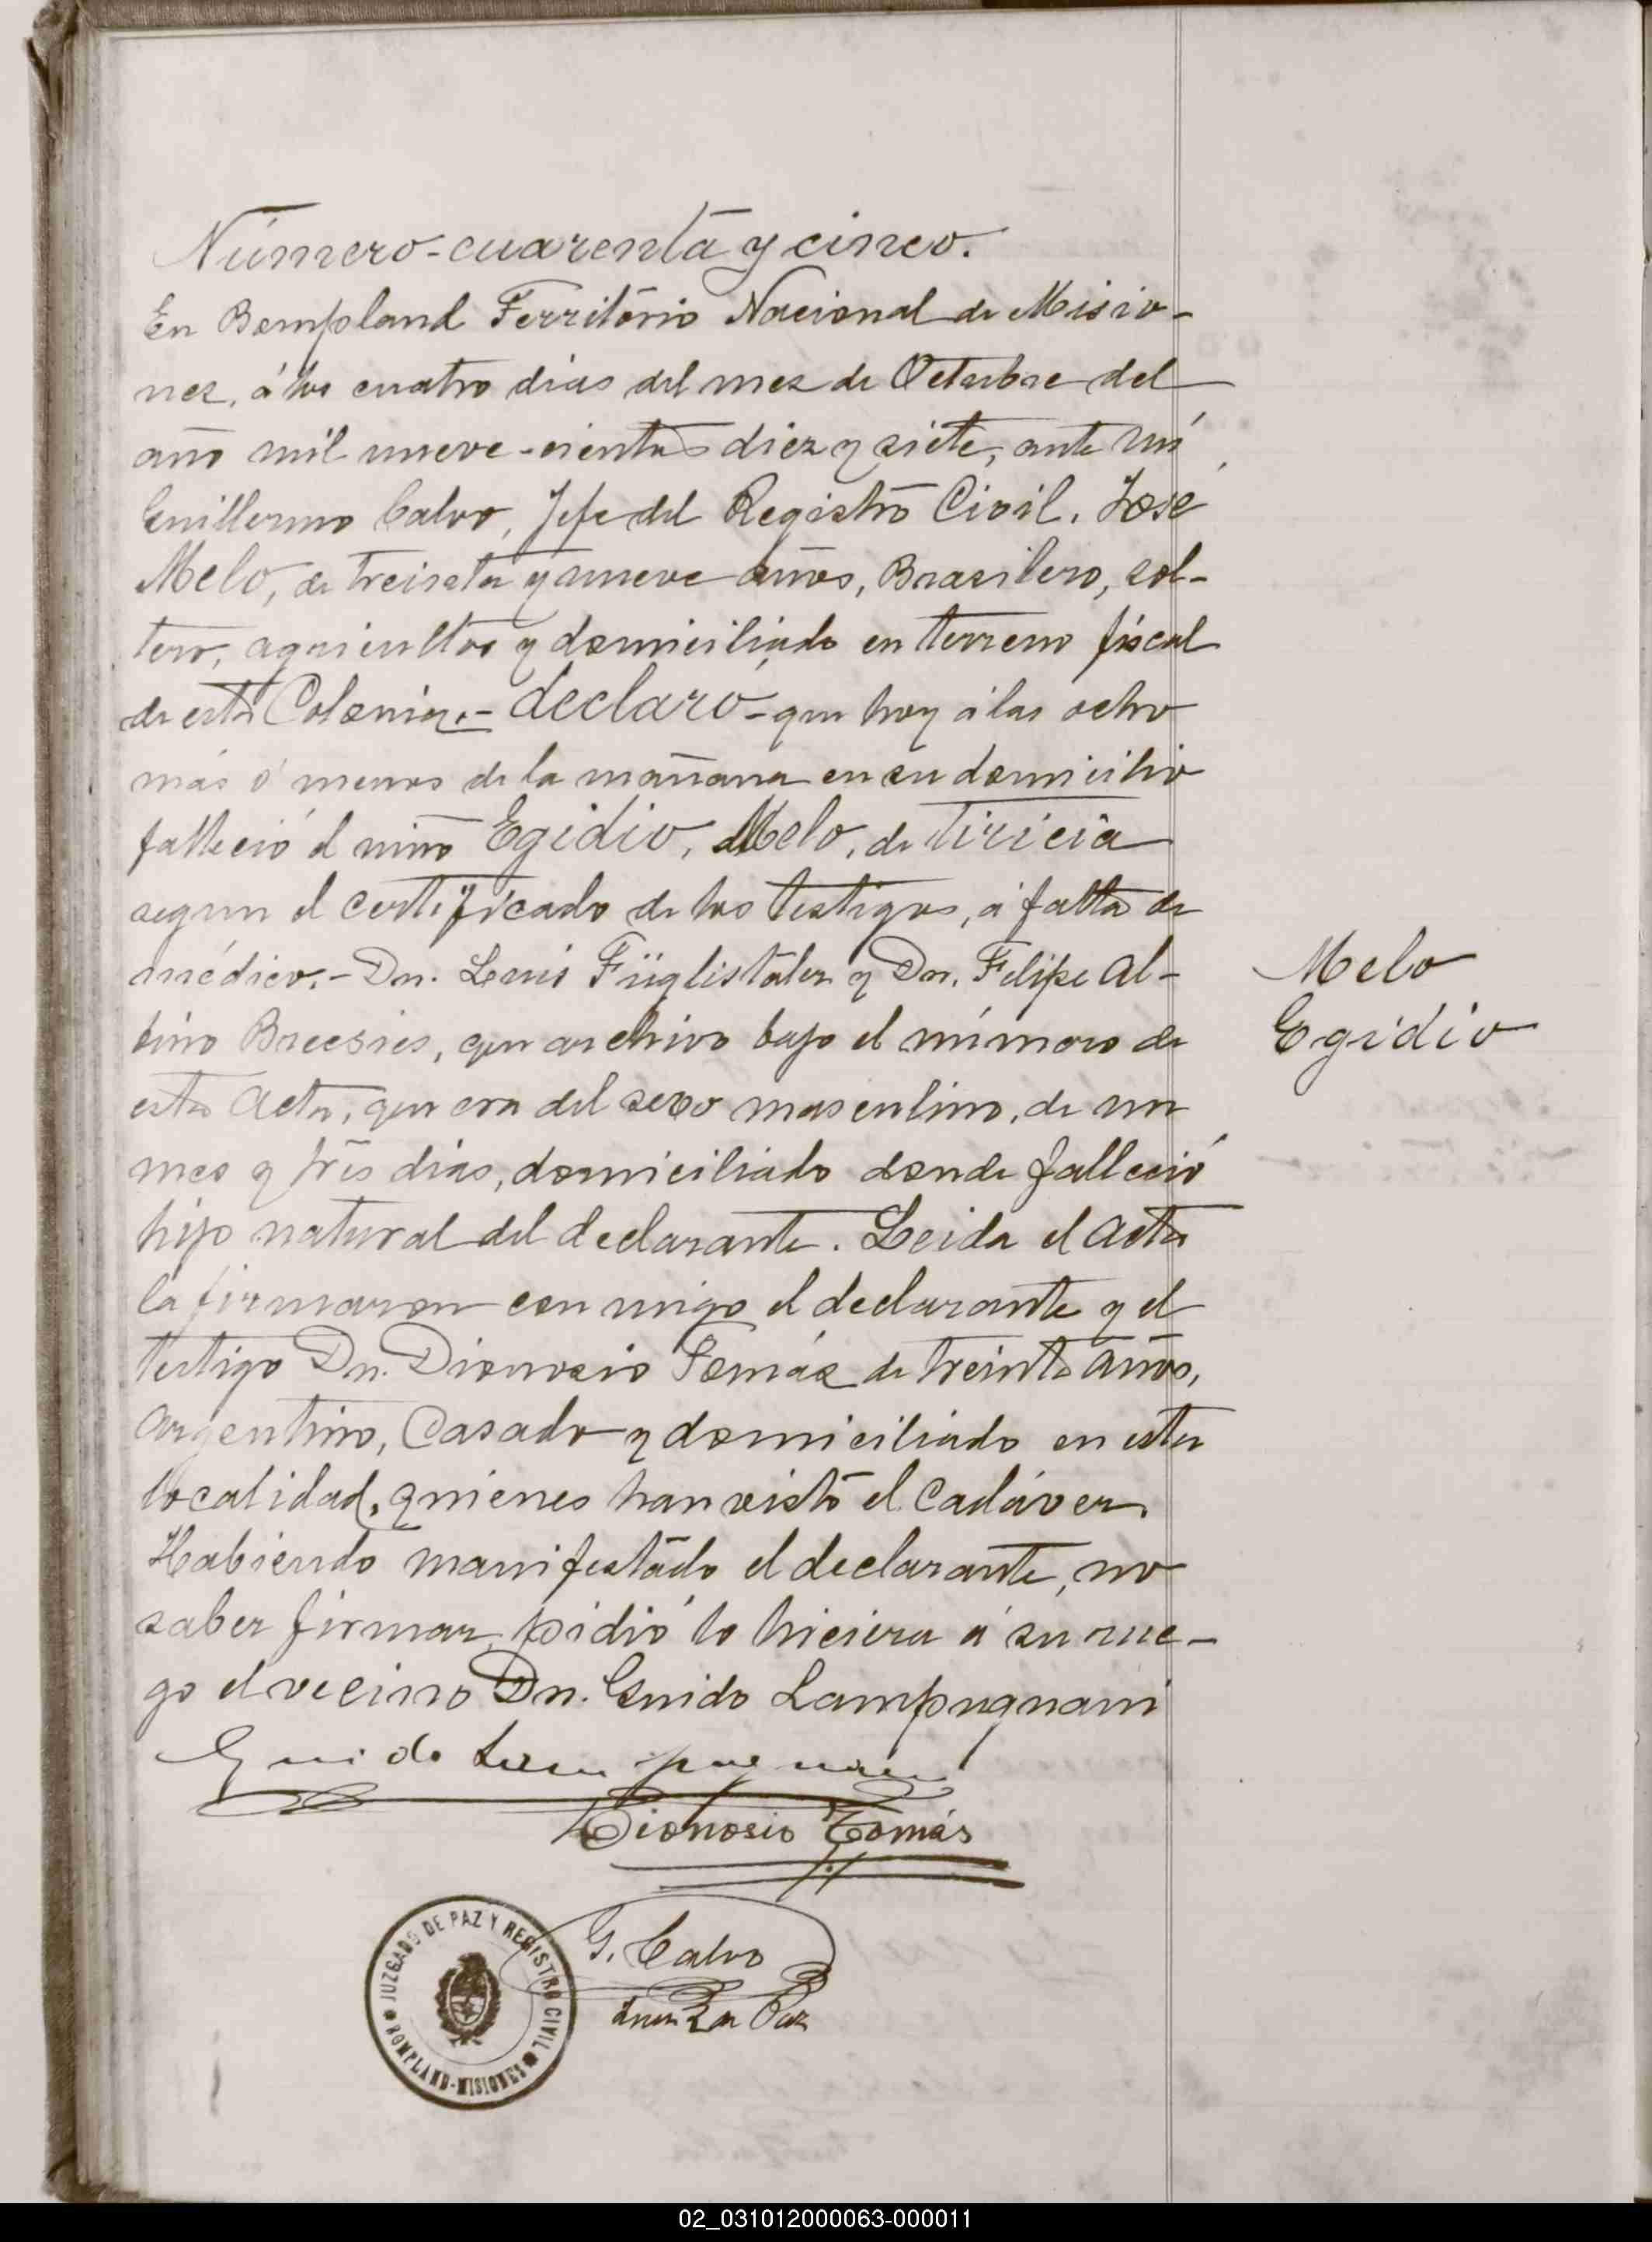 Número-cuarenta y cinco.
En Bompland Territorio Nacional de Misio-
nes, á los cuatro dias del mes de Octubre del
año mil nueve-cientos diez y siete, ante mí
Guillermo Calvo, Jefe del Registro Civil. José
Melo, de treinta y nueve años, Brasilero, sol-
tero, agricultor y domiciliado en terreno fiscal
de esta Colonia.- declaró- que hoy á las ocho
más ó menos de la mañana en su domicilio
falleció el niño Egidio, Melo, de tiricia
segun el certificado de los testigos, á falta de
médico.- Dn. Luis Füglistaler y Dn. Felipe Al-
bino, que archivo bajo el número de
esta Acta, que era del sexo masculino, de un
mes y tres dias, domiciliado donde falleció
hijo natural del declarante. Leida el acta
la firmaron con migo el declarante y el
testigo Dn. Dionosio Tomás de treinta años,
Argentino, Casado y domiciliado en esta
localidad, quienes han visto el Cadáver.
Habiendo manifestado el declarante, no
saber firmar, pidió lo hiciera á su rue-
go el vecino Dn. Guido Lampugnani
Guido Lampugnani
Dionosio Tomás
G. Calvo
Juez de Paz
JUZGADO DE PAZ Y REGISTRO CIVIL
BOMPLAND-MISIONES
Melo
Egidio
02_031012000063-000011